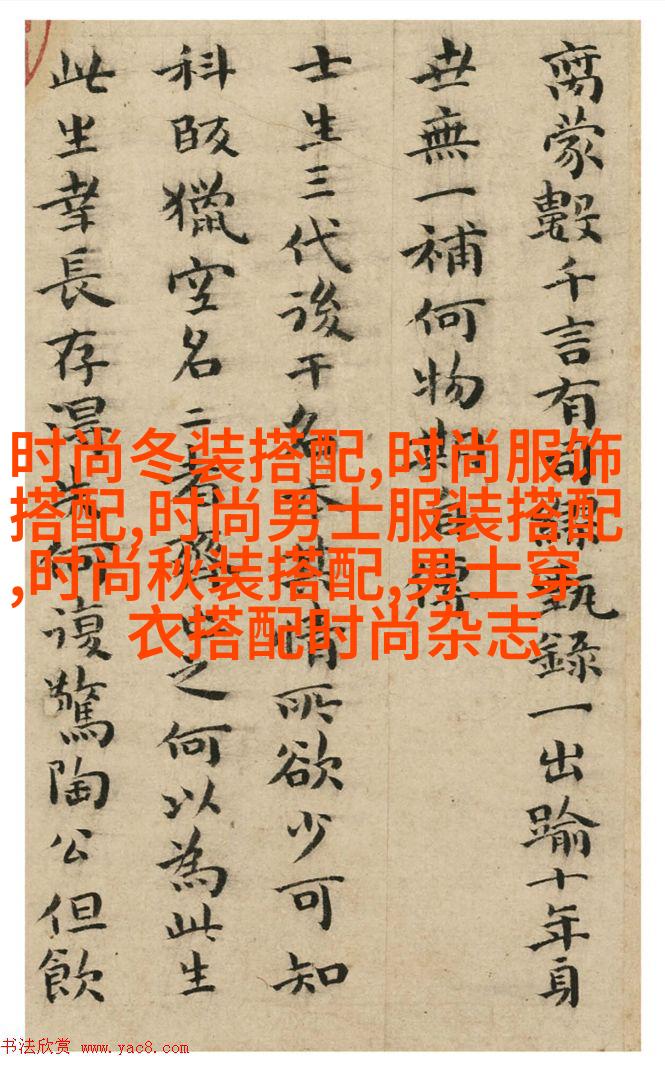 离蒙數千言有
一出踰十年身
世無一補何物
士生三代後干名
所欲少可知
科段獵空名二者
之何以為此生
此生幸長存
復驚陶公但飲
时尚冬装搭配,时尚服饰
搭配,时尚男士服装搭配
,时尚秋装搭配,男士穿
衣搭配时尚杂志
书法欣赏 www.yac8.com